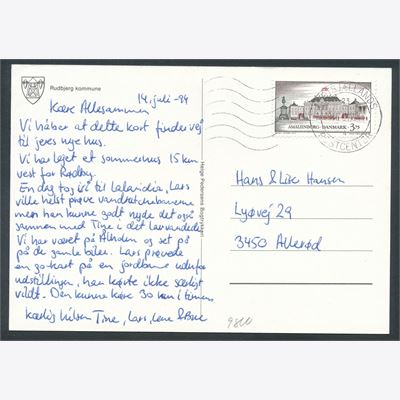 Rudbjerg kommune
14. juli - 94
Kære Allesammen
Vi håber at dette kort finder vej
til jeres nye hus.
Vi har lejet et sommerhus 15 km
vest for Rødby.
En dag tog vi til Lalandia, Lars
ville helst prøve vandrutchebanerne
men han kunne godt nyde det også
sammen med Tine i det lave vand.
Vi har været på Ålholm og set på
på de gamle biler. Lars prøvede
en go-kart på en jordbane udenfor
udstillingen, han kørte ikke særligt
vildt. Den kunne køre 30 km i timen.
Kærlig hilsen Tine, Lars, Lene &
Helge Petersens Bogtrykkeri
AMALIENBORG · DANMARK 3.75
POSTCENTER
Hans & Lise Hansen
Lyøvej 29
3450 Allerød
9800